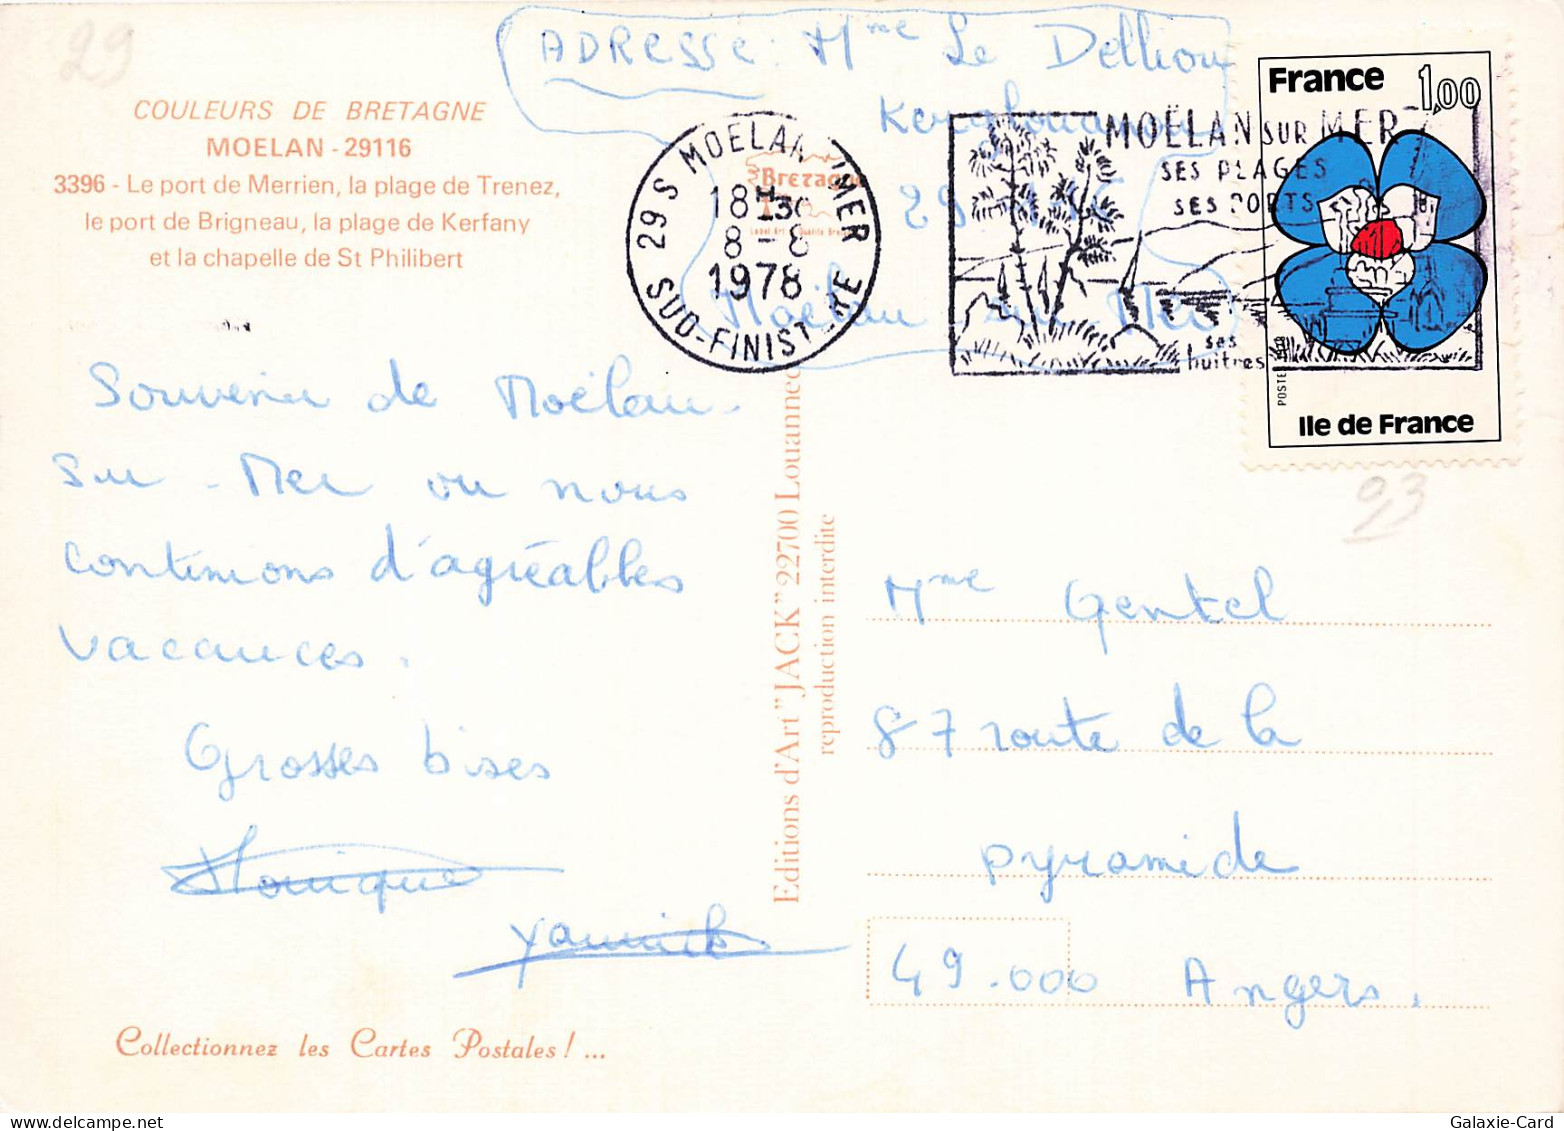 29
ADRESSE : Mme Le Delliou
29
Moëlan sur Mer
COULEURS DE BRETAGNE
MOELAN - 29116
3396 - Le port de Merrien, la plage de Trenez,
le port de Brigneau, la plage de Kerfany
et la chapelle de St Philibert
Bretagne
29 S MOELAN MER
18H30
8-8
1978
SUD-FINISTERE
MOËLAN SUR MER
SES PLAGES
SES PORTS
ses
huitres
France 1,00
POSTES
Ile de France
Souvenir de Moëlan-
Sur-Mer ou nous
continuons d'agréables
vacances.
Grosses bises
Monique
Yannick
Collectionnez les Cartes Postales ! ...
Editions d'Art "JACK" 22700 Louannec
reproduction interdite
93
Mme Gentel
87 route de la
pyramide
49.000 Angers.
Galaxie-Card